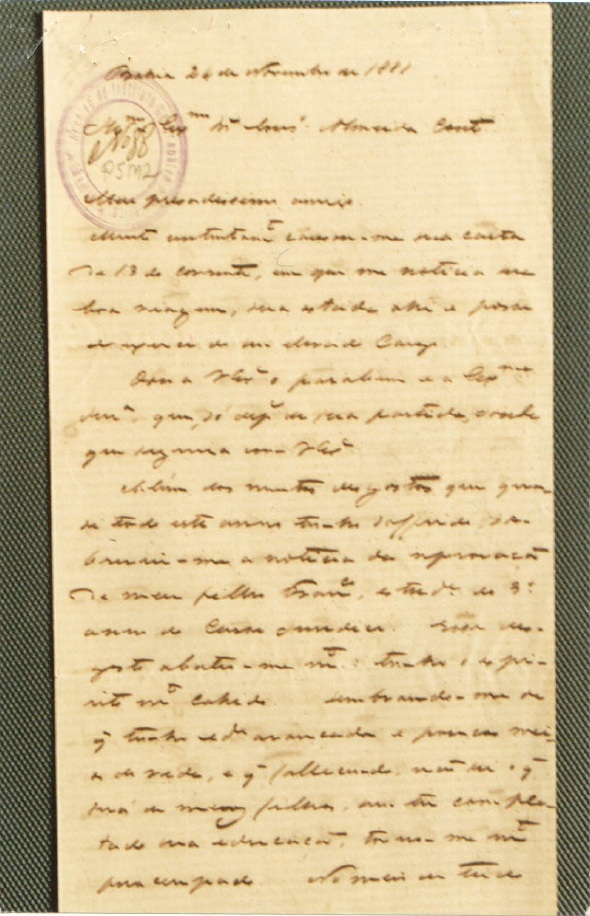 Bahia 24 de Novembro de 1888
Exmº Sr. Almeida Couto
Meu presadissimo amigo
Muito causou-me sua carta
de 13 do corrente, em que me noticia sua
boa viagem, sua estada ahi e posse
do de um elevado Cargo.
Dou a V Exª os parabens e a Exma
Senrª que, só depº de sua partida, soube
que seguira com V Exª
Alem dos muitos desgostos que qua-
si todo este anno tenho soffrido, so-
breveio-me a noticia da reprovação
de meu filho Franº, estudº do 3º
anno do Curso Juridico. Esse des-
gosto abateu-me mtº: tenho o espi-
rito mtº cahido. Lembrando-me de
q tenho edº avançada e poucos mei-
os de vida, e q fallecendo, não sei o q
será de meus filhos, sem ter comple-
tado sua educação, torno-me mtº
preoccupado. No meio de tudo